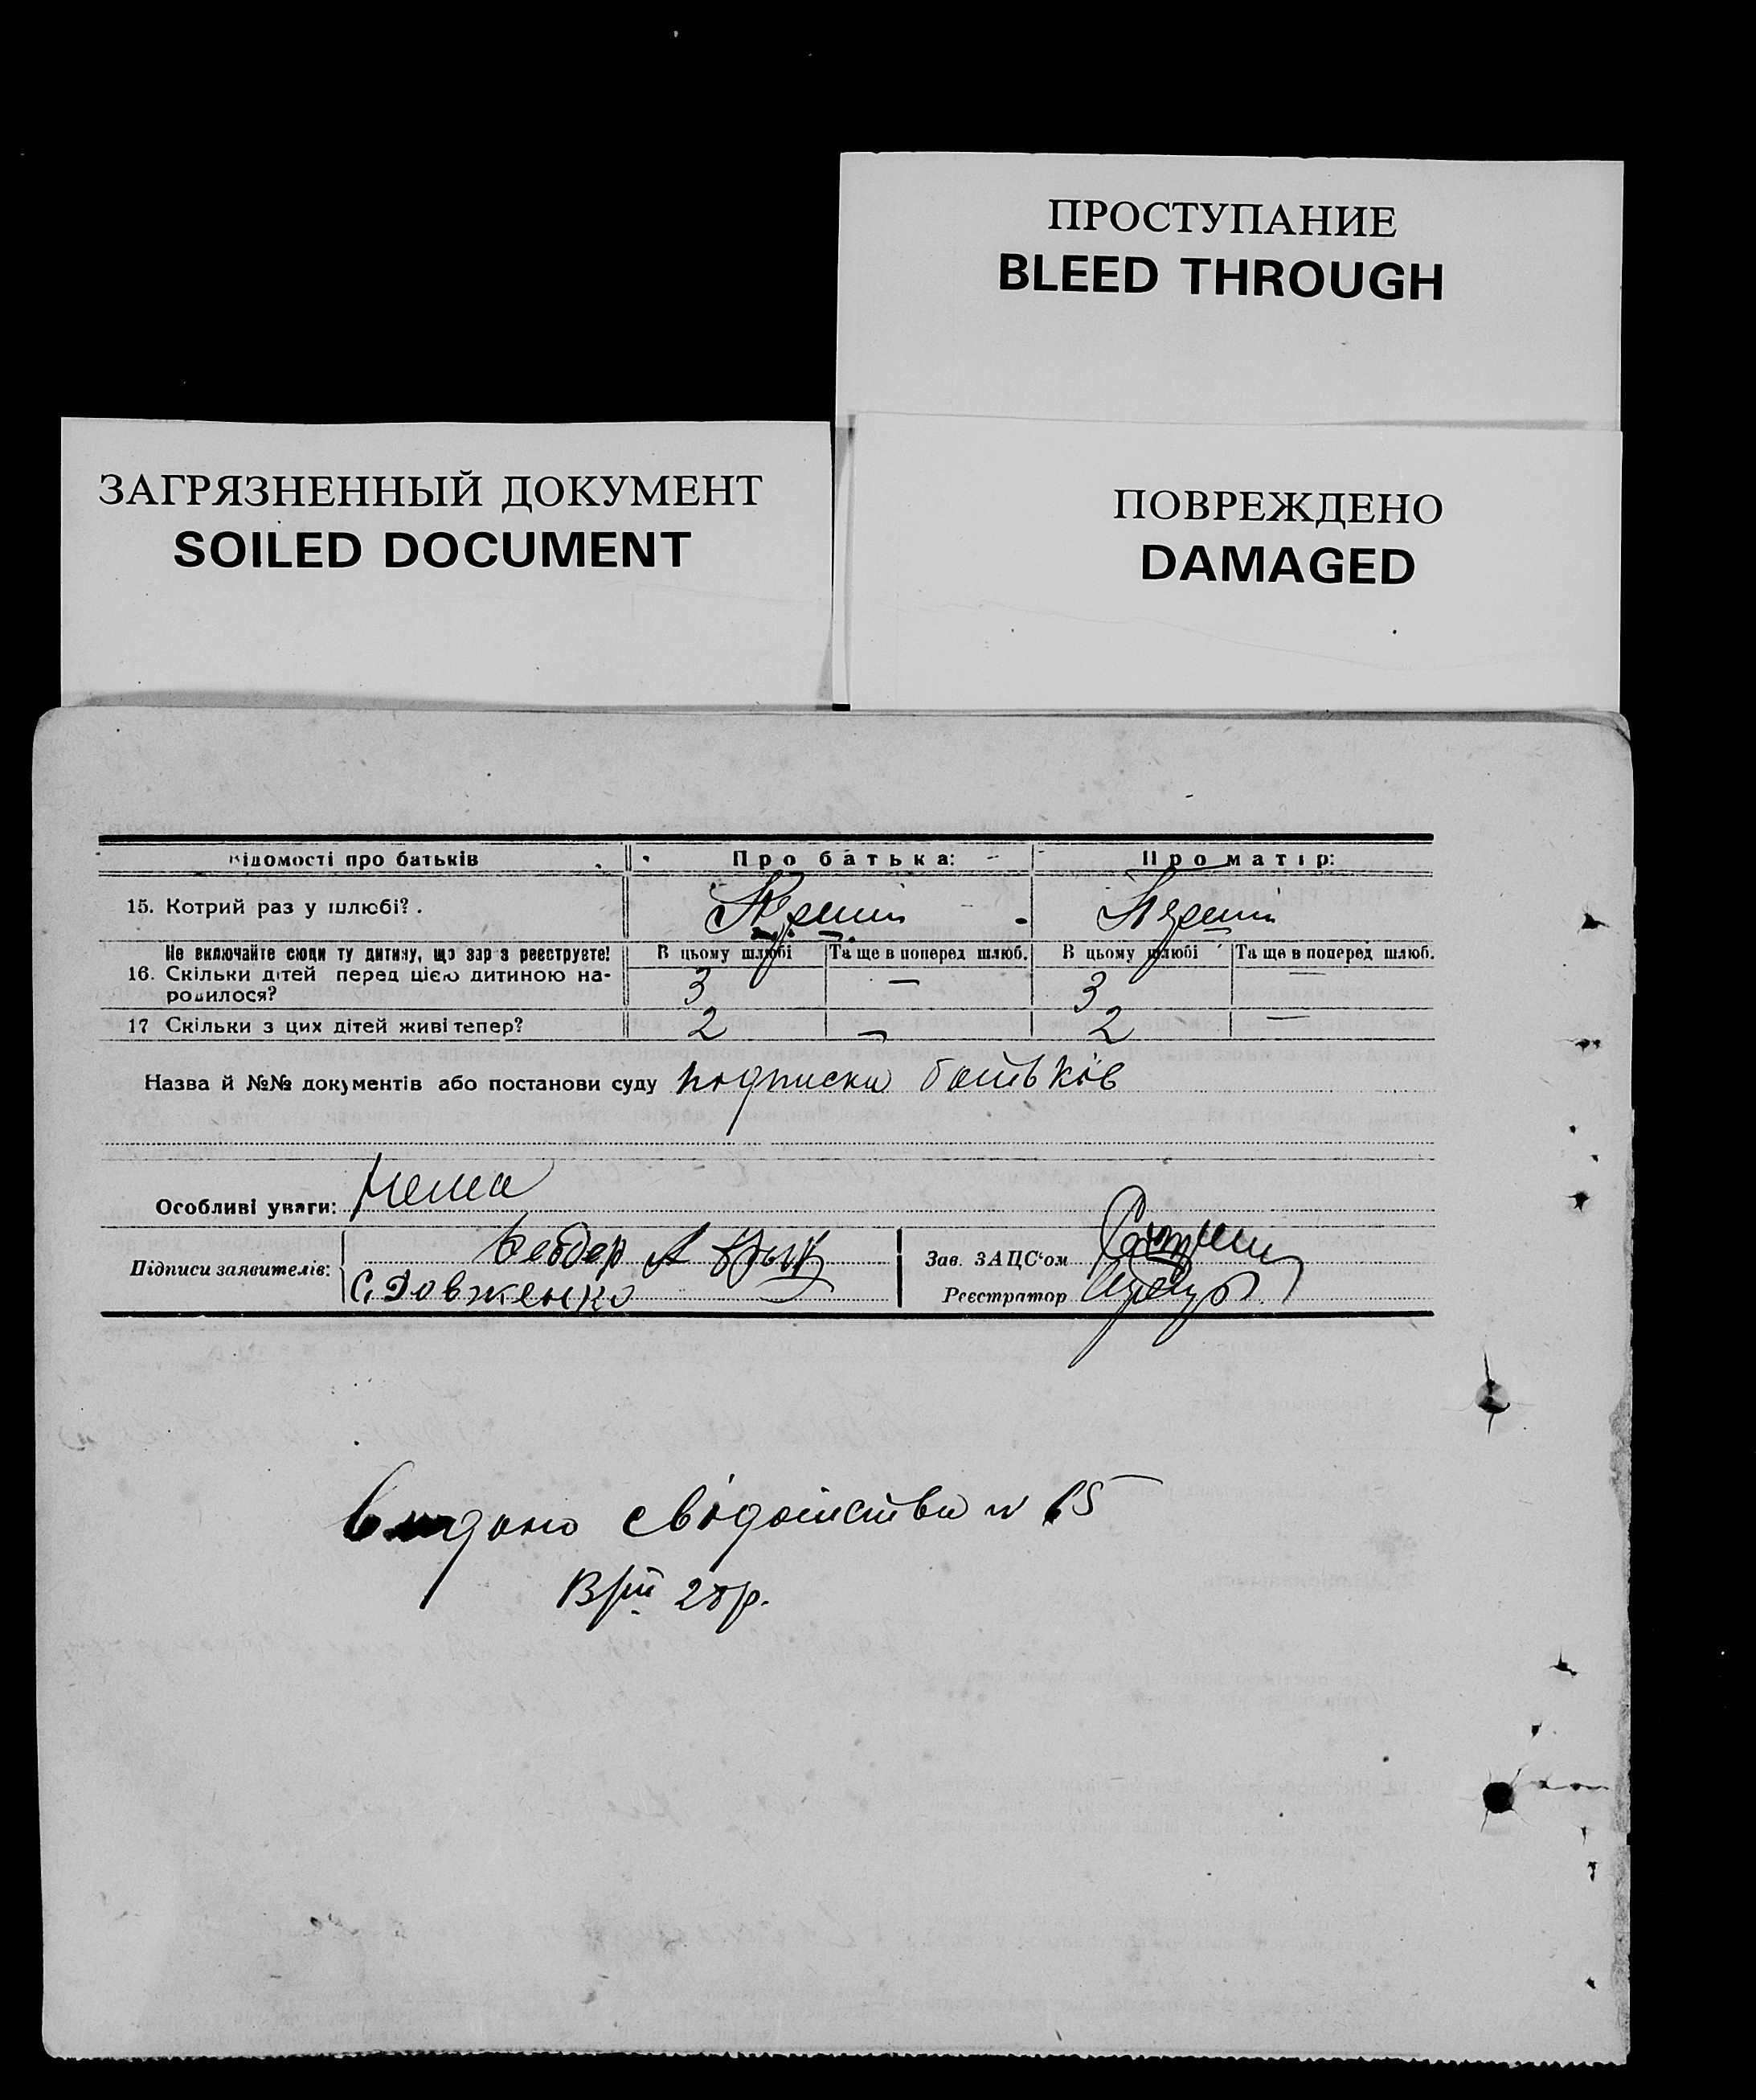 ПРОСТУПАНИЕ
BLEED THROUGH
ЗАГРЯЗНЕННЫЙ ДОКУМЕНТ
SOILED DOCUMENT
ПОВРЕЖДЕНО
DAMAGED
Відомості про батьків Про батька: Про матір:
15. Котрий раз у шлюбі? . Перший Перший
Не включайте сюди ту дитину, що зараз реєструєте! В цьому шлюбі Та ще в поперед шлюб. В цьому шлюбі Та ще в поперед шлюб.
16. Скільки дітей перед цією дитиною на- 3 — 3 —
родилося?
17 Скільки з цих дітей живі тепер? 2 — 2 —
Назва й №№ документів або постанови суду подписки батьків
Особливі уваги: Нема
Підписи заявителів:
С. Довженко
Зав. ЗАЦС‘ом
Реєстратор
Видано свідоитства N 65
28р.